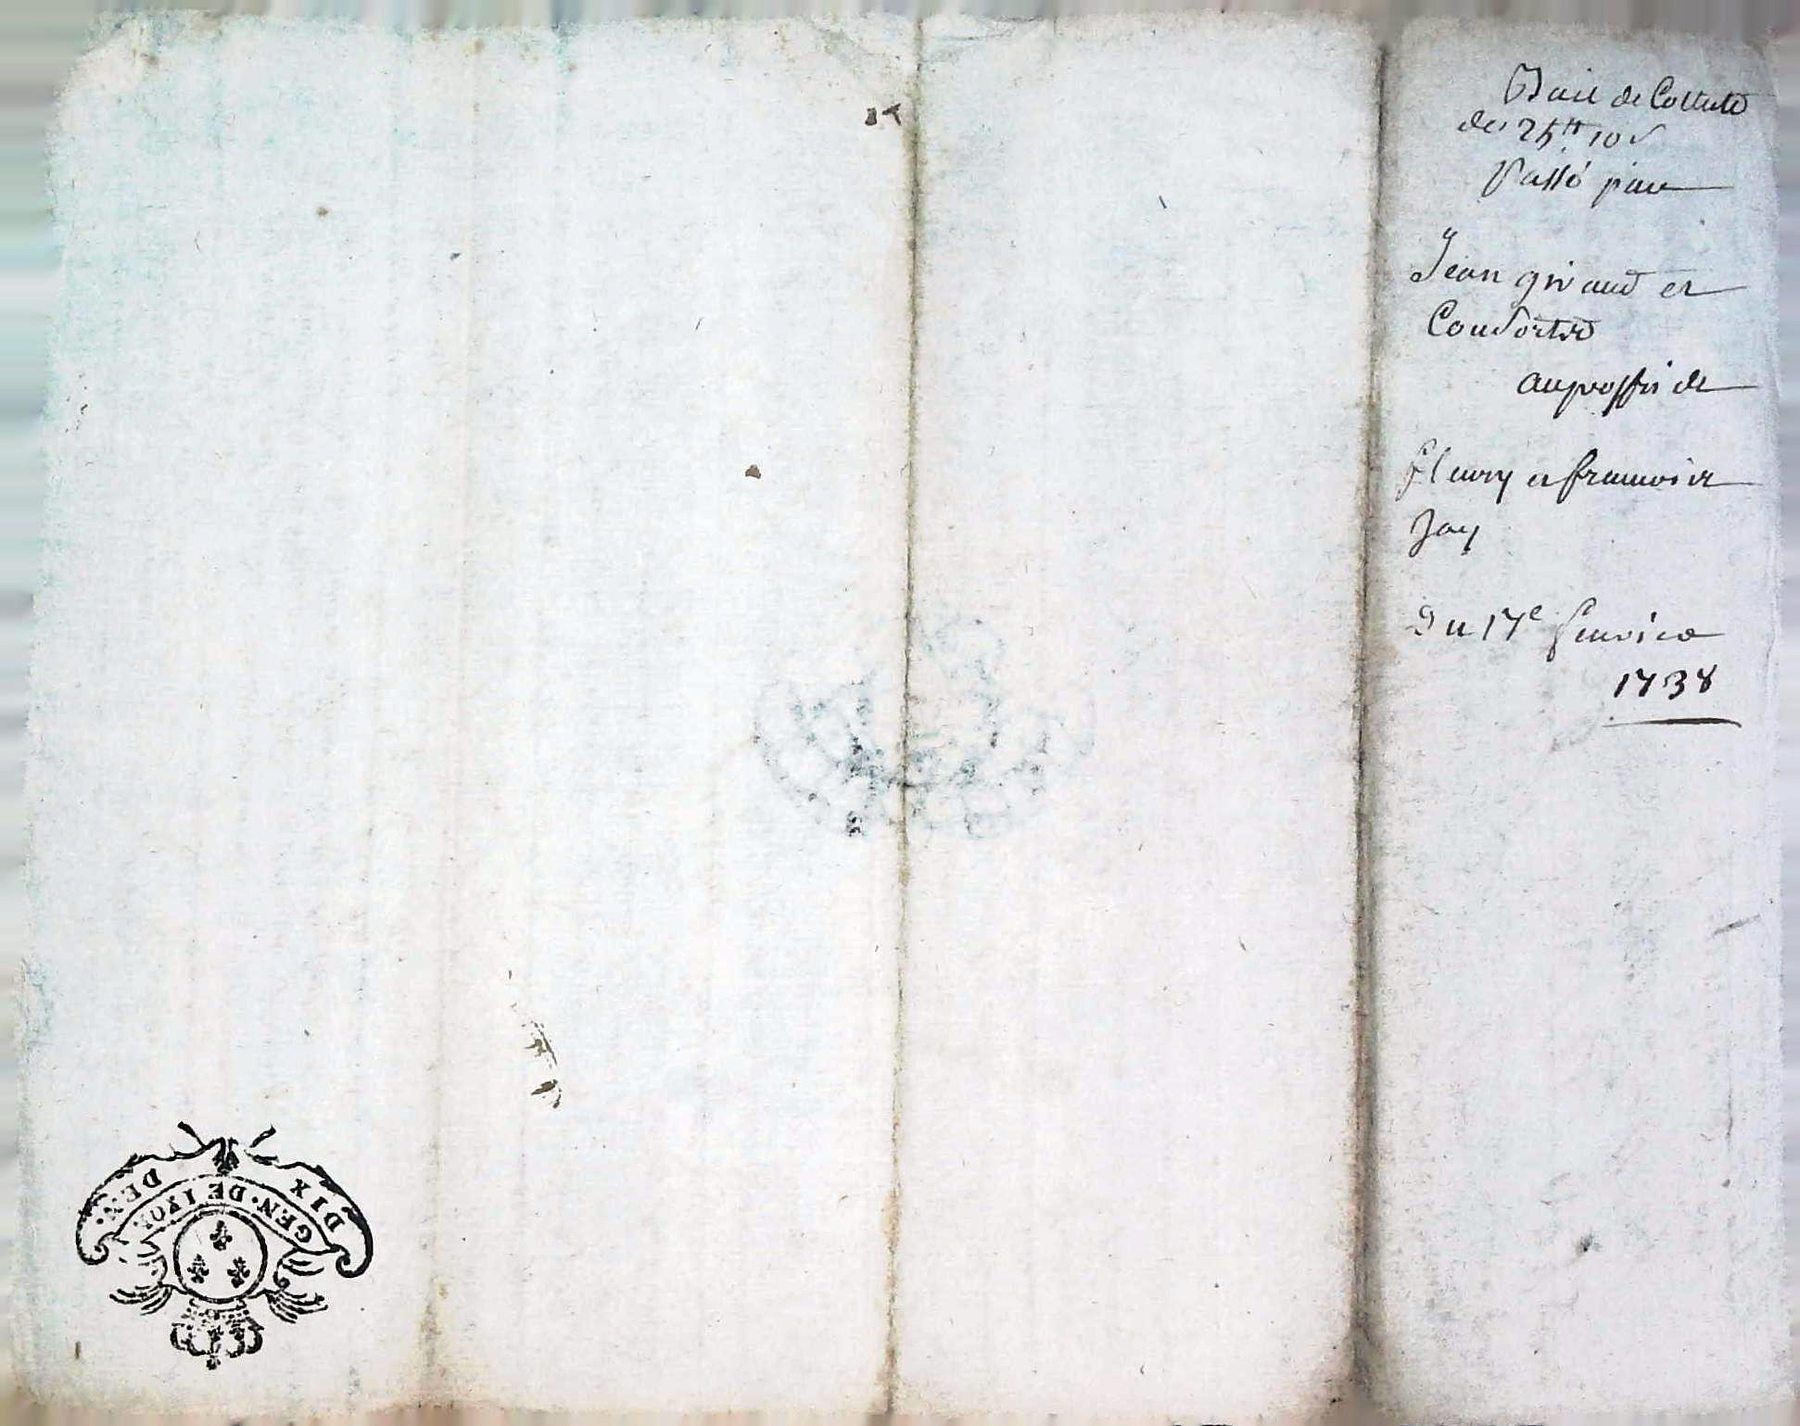 Bail de
de 25ᵗᵗ 10 s
Passé par
Jean giraud et
Consorts
au proffit de
fleury et francois
Jay
Du 17e
1738
DIX DEN.
GEN. DE LYON